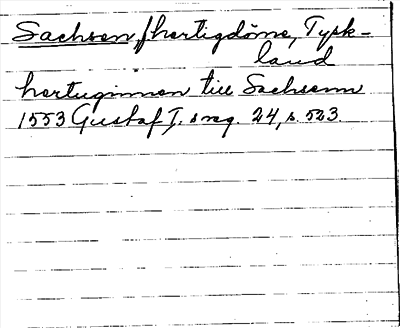 Sachsen, hertigdöme, Tysk-
land
hertuginnan till Sachsenn
1553 Gustaf I. s reg. 24, s. 523.